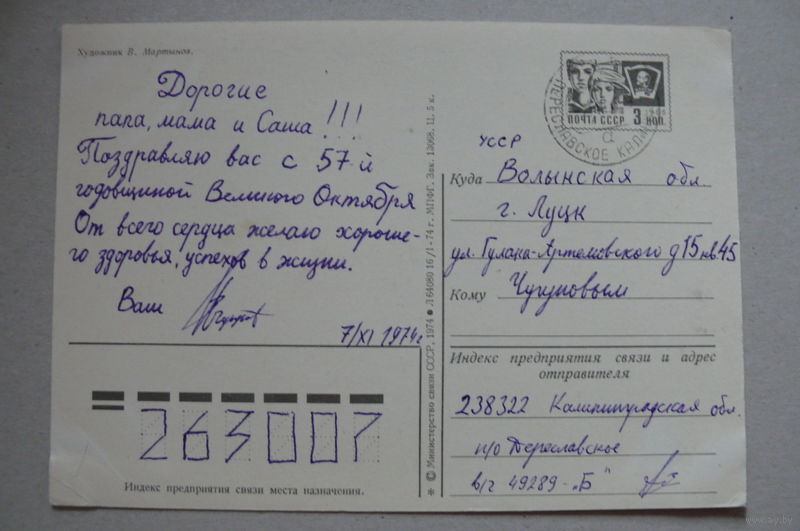 Художник В. Мартынов.
Дорогие
папа, мама и Саша!!!
Поздравляю вас с 57-й
годовщиной Великого Октября
От всего сердца желаю хороше-
го здоровья, успехов в жизни.
Ваш
7/XI 1974г
263007
Индекс предприятия связи места назначения.
* © Министерство связи СССР, 1974 ● Л 64080 16/I-74 г. МПФГ. Зак. 13068. Ц. 5 к.
ПОЧТА СССР 3 КОП
ПЕРЕСЛАВСКОЕ КАЛИН
УССР
Куда Волынская обл.
г. Луцк
ул. Гулака-Артемовского д 15 кв 45
Кому Чугуновым
Индекс предприятия связи и адрес
отправителя
238322 Калининградская обл.
п/о Переславское
в/ч 49289-„Б"